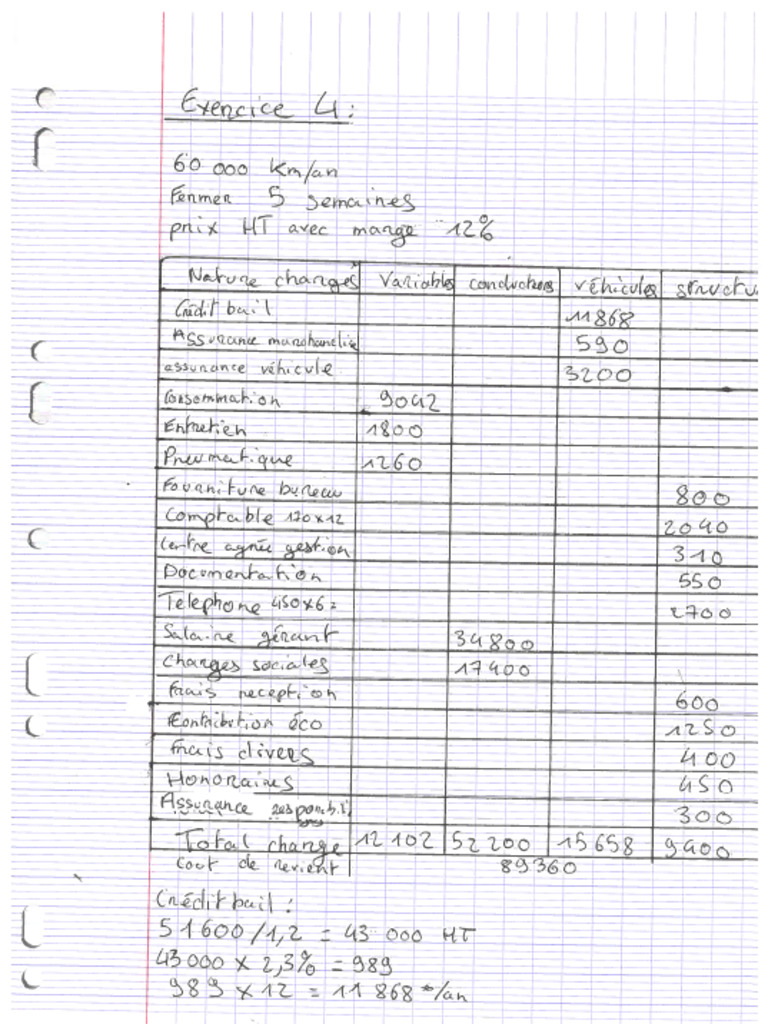 Exercice 4:
60 000 Km/an
Fermer 5 semaines
prix HT avec marge 12%
Nature charges Variables conducteurs véhicules structu
Crédit bail 11868
Assurance marchandise 590
assurance véhicule 3200
Consommation 9042
Entretien 1800
Pneumatique 1260
Fourniture bureau 800
Comptable 170x12 2040
Centre agrée gestion 310
Documentation 550
Telephone 450x6= 2700
Salaire gérant 34800
Charges sociales 17400
Frais reception 600
Contribution éco 1250
Frais divers 400
Honoraires 450
Assurance responb.i. 300
Total charge 12 102 52 200 15 658 9400
Cout de revient 89360
Crédit bail:
51600/1,2 = 43 000 HT
43000 x 2,3% = 989
989 x 12 = 11 868 €/an